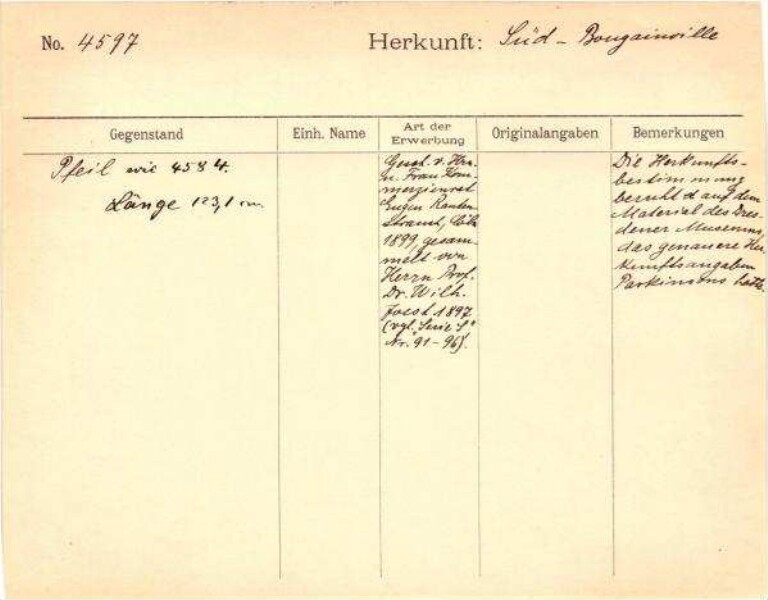 No. 4597
Herkunft: Süd - Bougainville
Gegenstand
Einh. Name
Art der
Erwerbung
Originalangaben
Bemerkungen
Pfeil wie 4584.
Länge 123,1 cm.
Gesch. v. Hrn.
u. Frau Kom-
merzienrat
Eugen Rauten-
strauch, Cöln
1899, gesam-
melt von
Herrn Prof.
Dr. Wilh.
Joest 1897
(vgl. Serie "S"
Nr. 91-96).
Die Herkunfts-
bestimmung
beruht auf dem
Material des Dres-
dener Museums,
das genauere Her-
kunftsangaben
Parkinsons hatte.